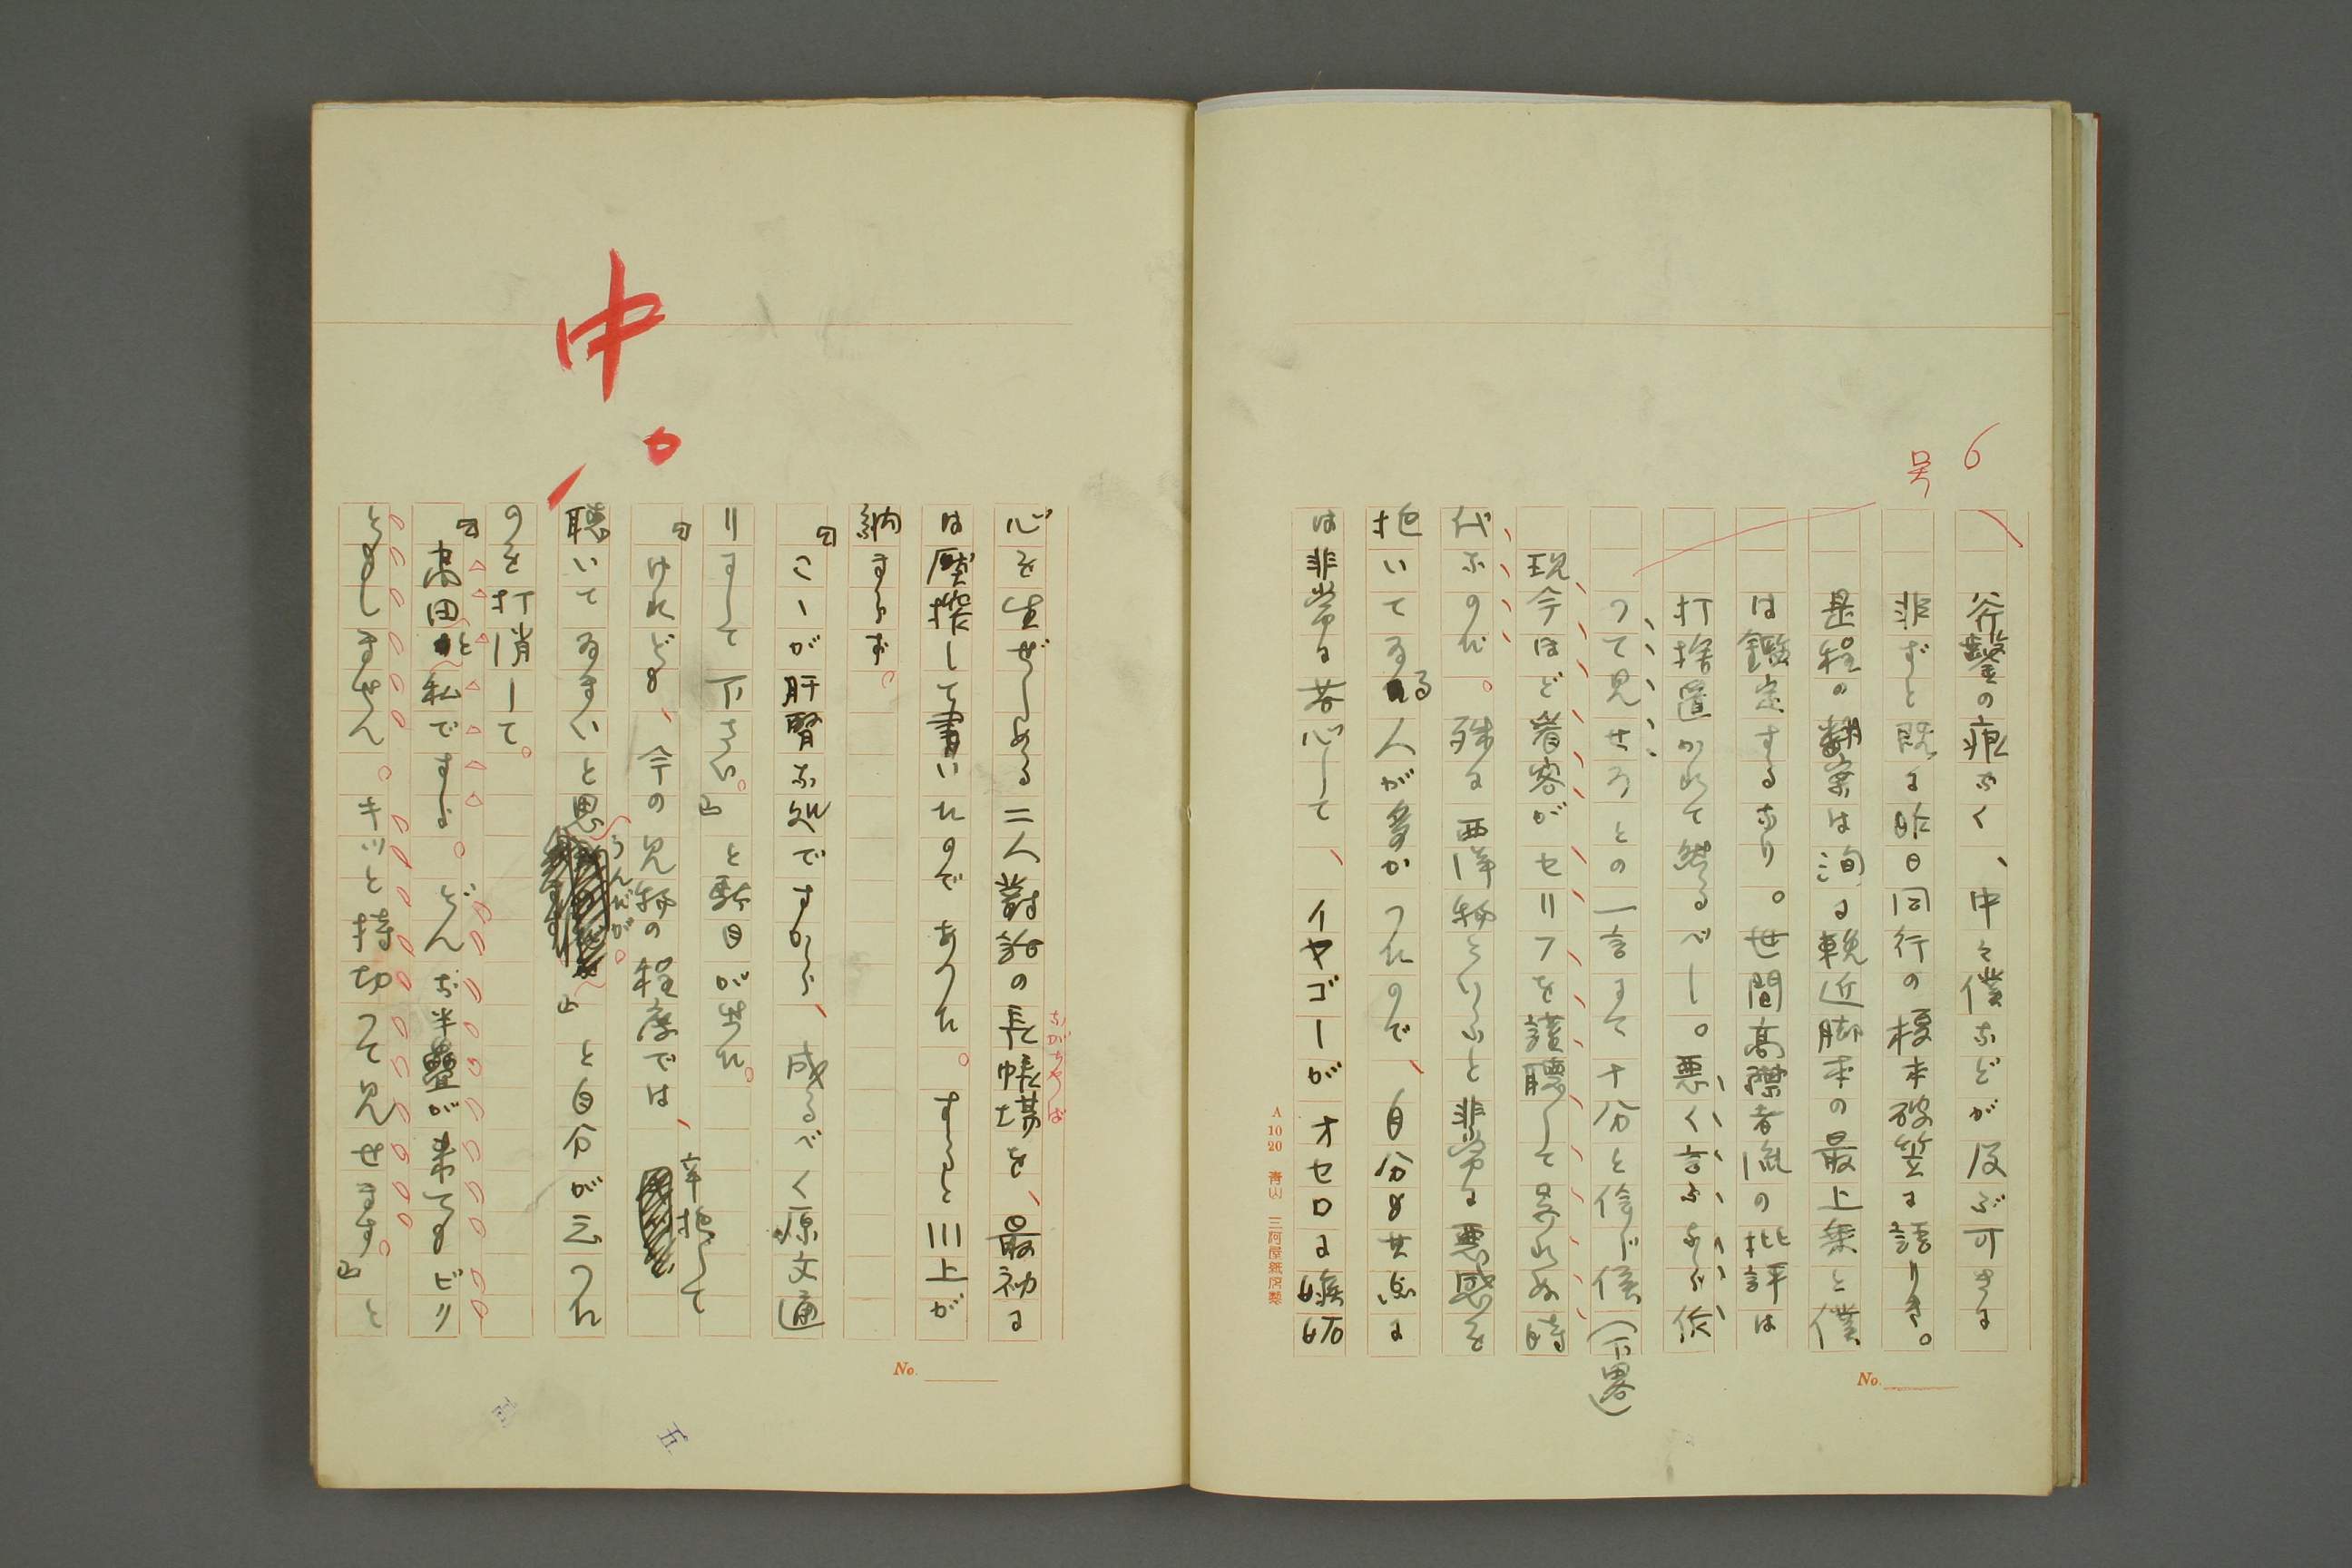 6
号
斧鑿の痕なく、中々僕などが及ぶ可きに
非ずと既に昨日同行の榎本破笠に語りき。
是程の翻案は洵に輓近脚本の最上乗と僕
は鑑定するなり。世間高襟者流の批評は
打捨置かれて然るべし。悪く言ふならば俟
つて見せろとの一言にて十分と信ド候（下略）
現今ほど看客がセリフを謹聴して呉れぬ時
代なのだ。殊に西洋物といふと非常に悪感を
抱いてゐる人が多かつたので、自分も其点に
は非常に苦心して、イヤゴーがオセロに嫉妬
A 10 20 青山 三河屋紙店製
No.
心を生ぜしめる二人対話の長帳場を、最初に
ながちやうば
は壓搾して書いたのであつた。すると川上が
納まらず。
『こゝが肝腎な処ですから、成るべく原文通
りにして下さい。』と駄目が出た。
『けれども、今の見物の程度では、辛抱して
聴いてゐまいと思うんだが。』と自分が云つた
のを打消して。
『高田と私ですよ。どんな半畳が来てもビリ
ともしません。キッと持切つて見せます。』と
No.
中。